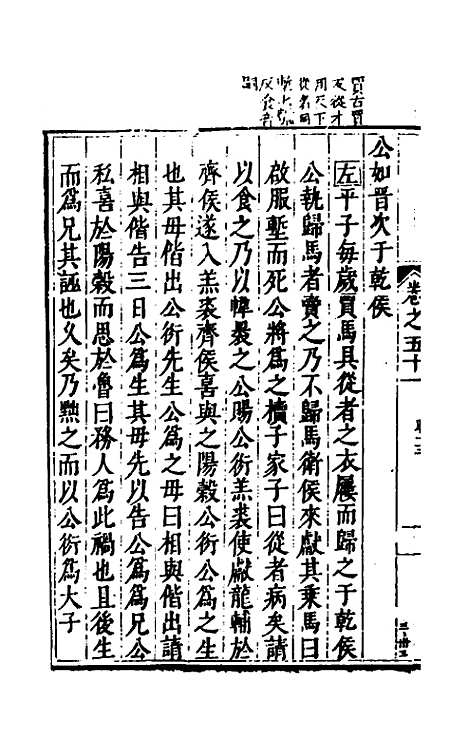 買古買
反從才
用天下
從者同
反食音
嗣
卷之五十一
公如晉次于乾侯
左平子每歲買馬具從者之衣屨而歸之于乾侯
公執歸馬者賣之乃不歸馬衛侯來獻其乘馬曰
啟服塹而死公將爲之櫝子家子曰從者病矣請
以食之乃以幃裹之公陽公衍羔裘使獻龍輔於
齊侯遂入羔裘齊侯喜與之陽穀公衍公爲之生
也其母偕出公衍先生公爲之母曰相與偕出請
相與偕告三日公爲生其母先以告公爲爲兄公
私喜於陽穀而思於魯曰務人爲此禍也且後生
而爲兄其誣也久矣乃黜之而以公衍爲大子